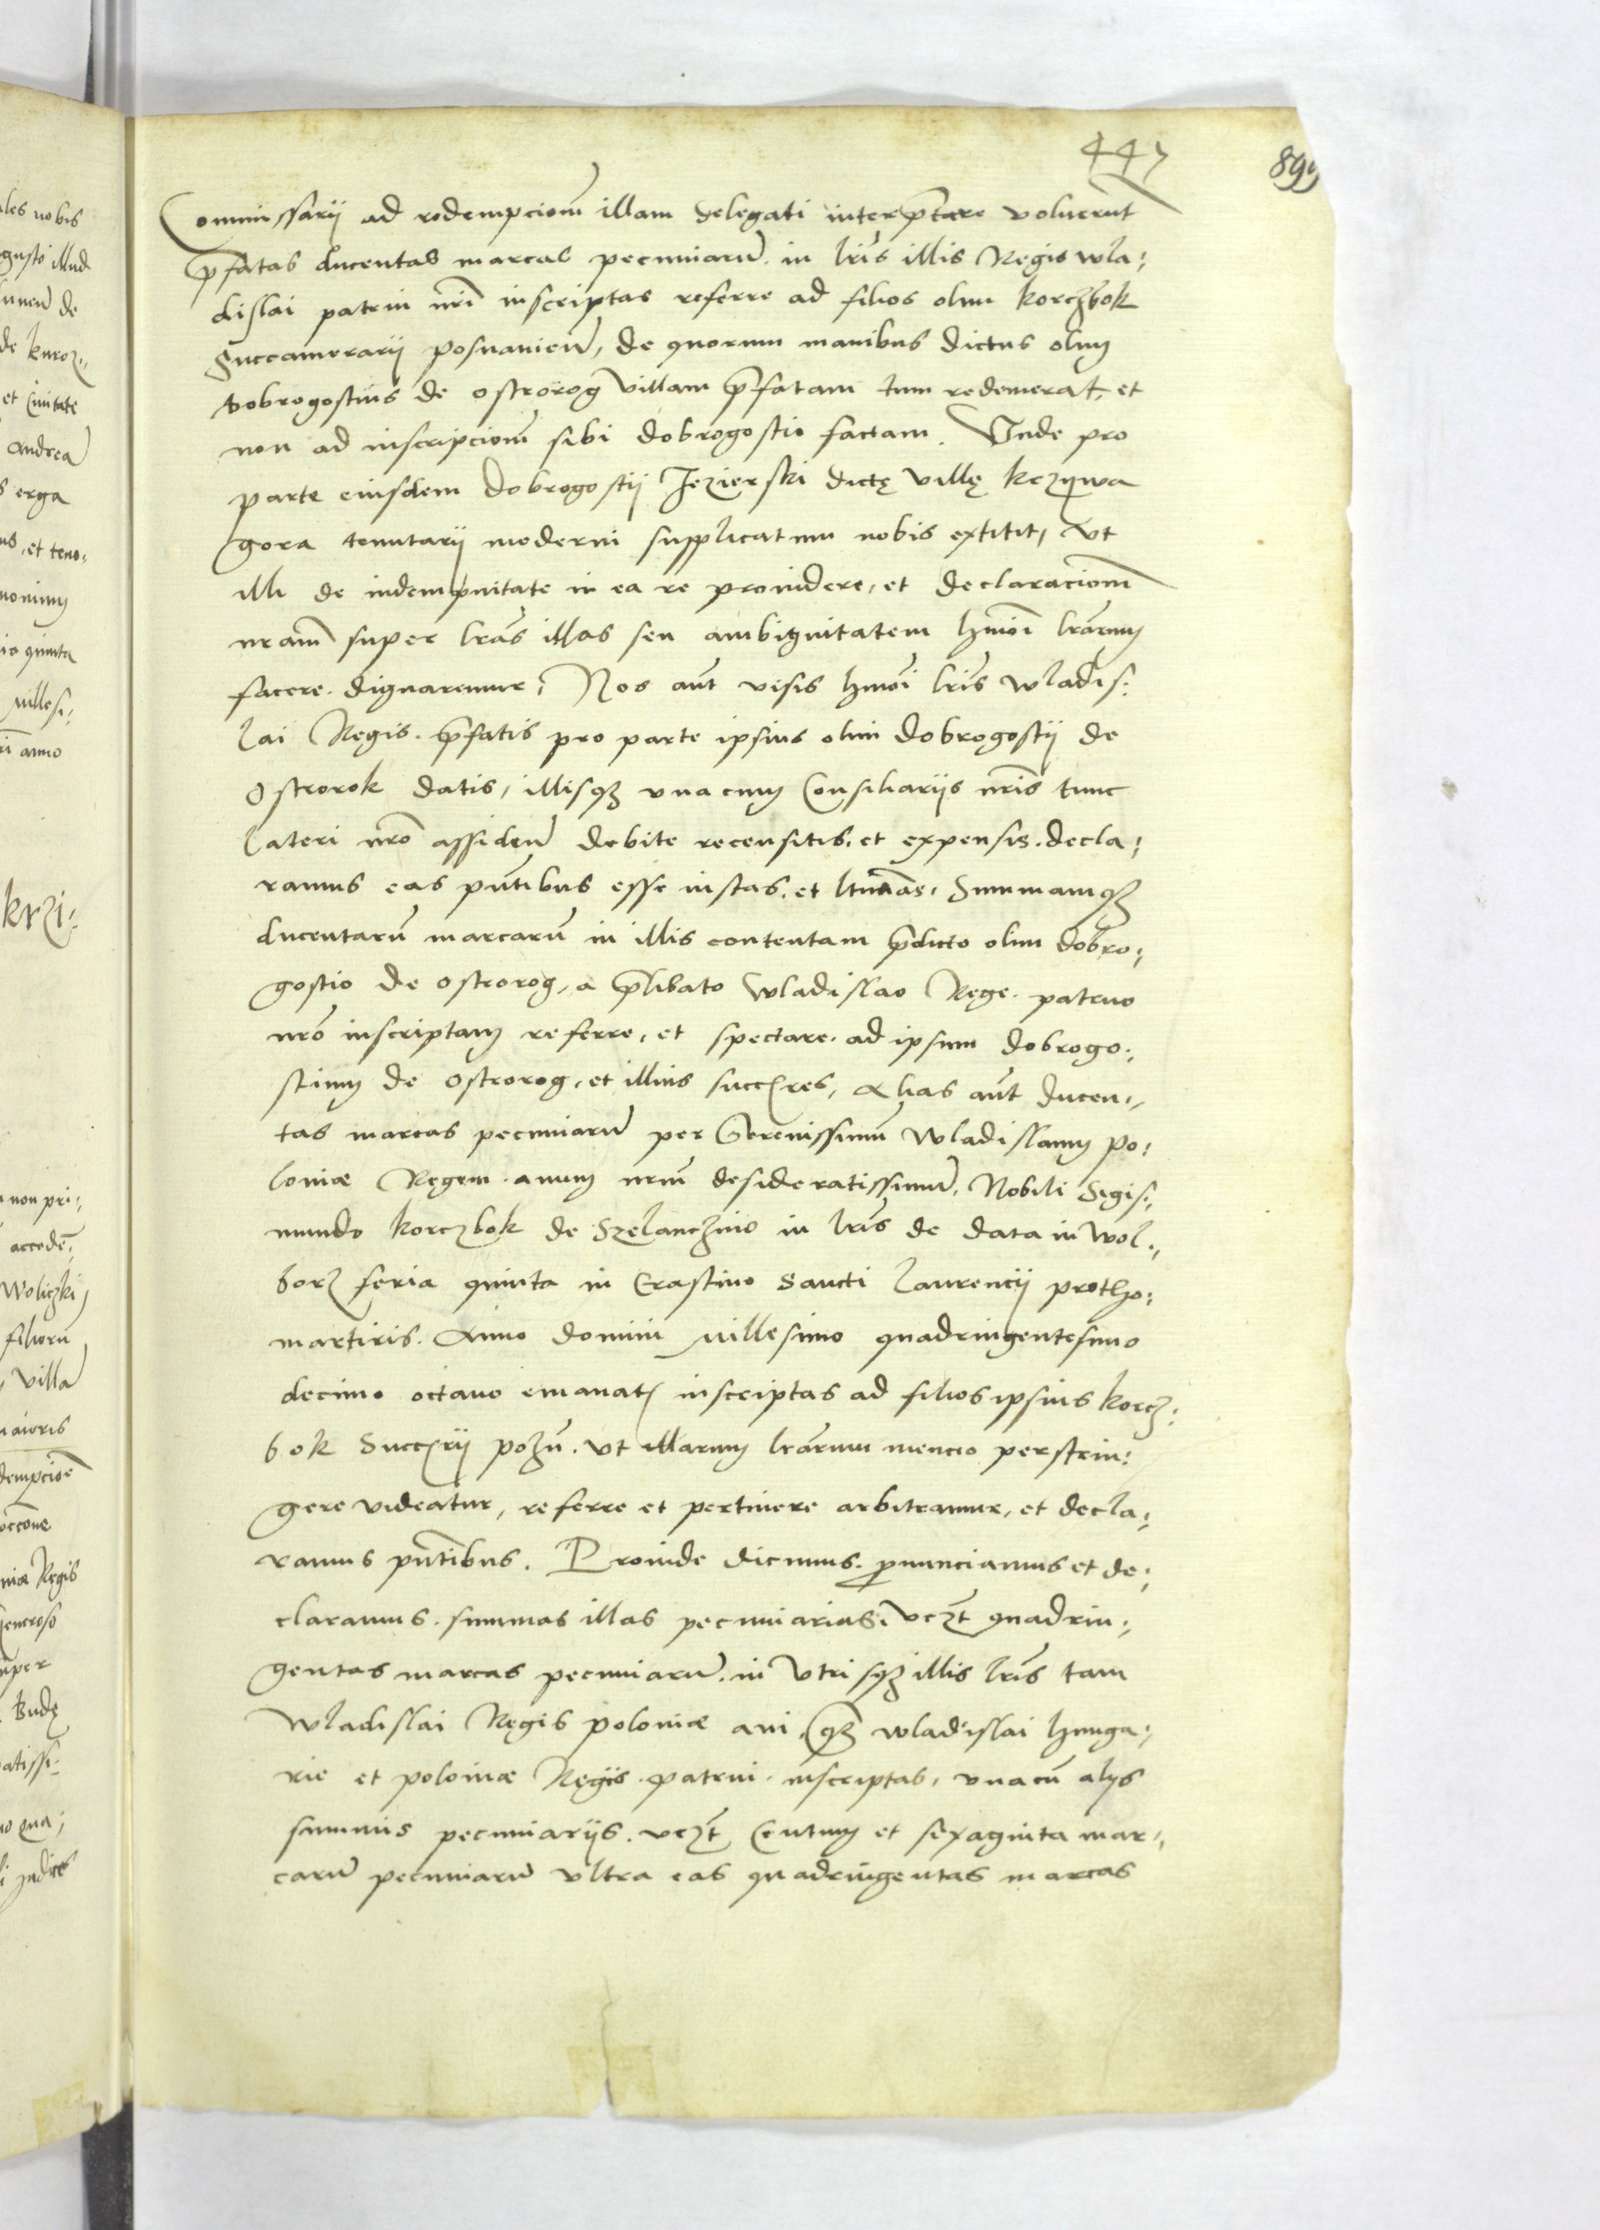 447
899
Commissarÿ ad redempcionem̄ illam delegati interp̄tare voluerunt
p̄fatas ducentas marcas pecuniarū in lr̄is illis Regis wla:
dislai patrui nr̄i inscriptas referre ad filios olim korczbok
Succamerarÿ posnanieñ, de quorum manibus dictus olim
Dobrogostius de ostrorog villam p̄fatam tum redemerat, et
non ad inscripcionem̄ sibi dobrogostio factam. Vnde pro
parte eiusdem dobrogostÿ Jezierski dictę villę krzywa
gora tenutarÿ moderni supplicatum nobis extitit, vt
illi de indempnitate in ea re prouidere, et declaracionem̄
nr̄am super lr̄as illas seu ambiguitatem hm̄oi lr̄arum
facere dignaremur, Nos aūt visis hm̄oi lr̄is wladis:
lai Regis p̄fatis pro parte ipsius olim dobrogostÿ de
ostrorok datis, illisq3 vnacum Consiliarÿs nr̄is tunc
lateri nr̄o assideñ debite recensitis, et expensis, decla:
ramus eas pūtibus esse iustas, et ltimas, Summamq3
ducentarū marcarū in illis contentam p̄dicto olim dobro:
gostio de ostrorog, a p̄libato wladislao Rege patruo
nr̄o inscriptam referre, et spectare ad ipsum dobrogo:
stium de ostrorog, et illius succres, Alias aūt ducen:
tas marcas pecuniarū per Serenissimū wladislaum po:
loniæ Regem auum nr̄um desideratissimū, Nobili Sigis:
mundo korczbok de Szelanczino in lr̄is de data in wol:
borz feria quinta in Crastino Sancti Laurencÿ protho:
martiris. Anno domini millesimo quadringentesimo
decimo octauo emanat inscriptas ad filios ipsius korcz:
bok Succrÿ pozn̄. vt illarum lr̄arum mencio perstrin:
gere videatur, referre et pertinere arbitramur, et decla:
ramus pūtibus. Proinde dicimus, pronunciamus et de:
claramus, summas illas pecuniarias, vcz̄t quadrin:
gentas marcas pecuniarū, in vtrisq3 illis lr̄is tam
wladislai Regis poloniæ aui, q̄3 wladislai hunga:
rie et poloniæ Regis patrui inscriptas, vnacū alÿs
summis pecuniarÿs, vcz̄t Centum et sexaginta mar:
carū pecuniarū vltra eas quadringentas marcas